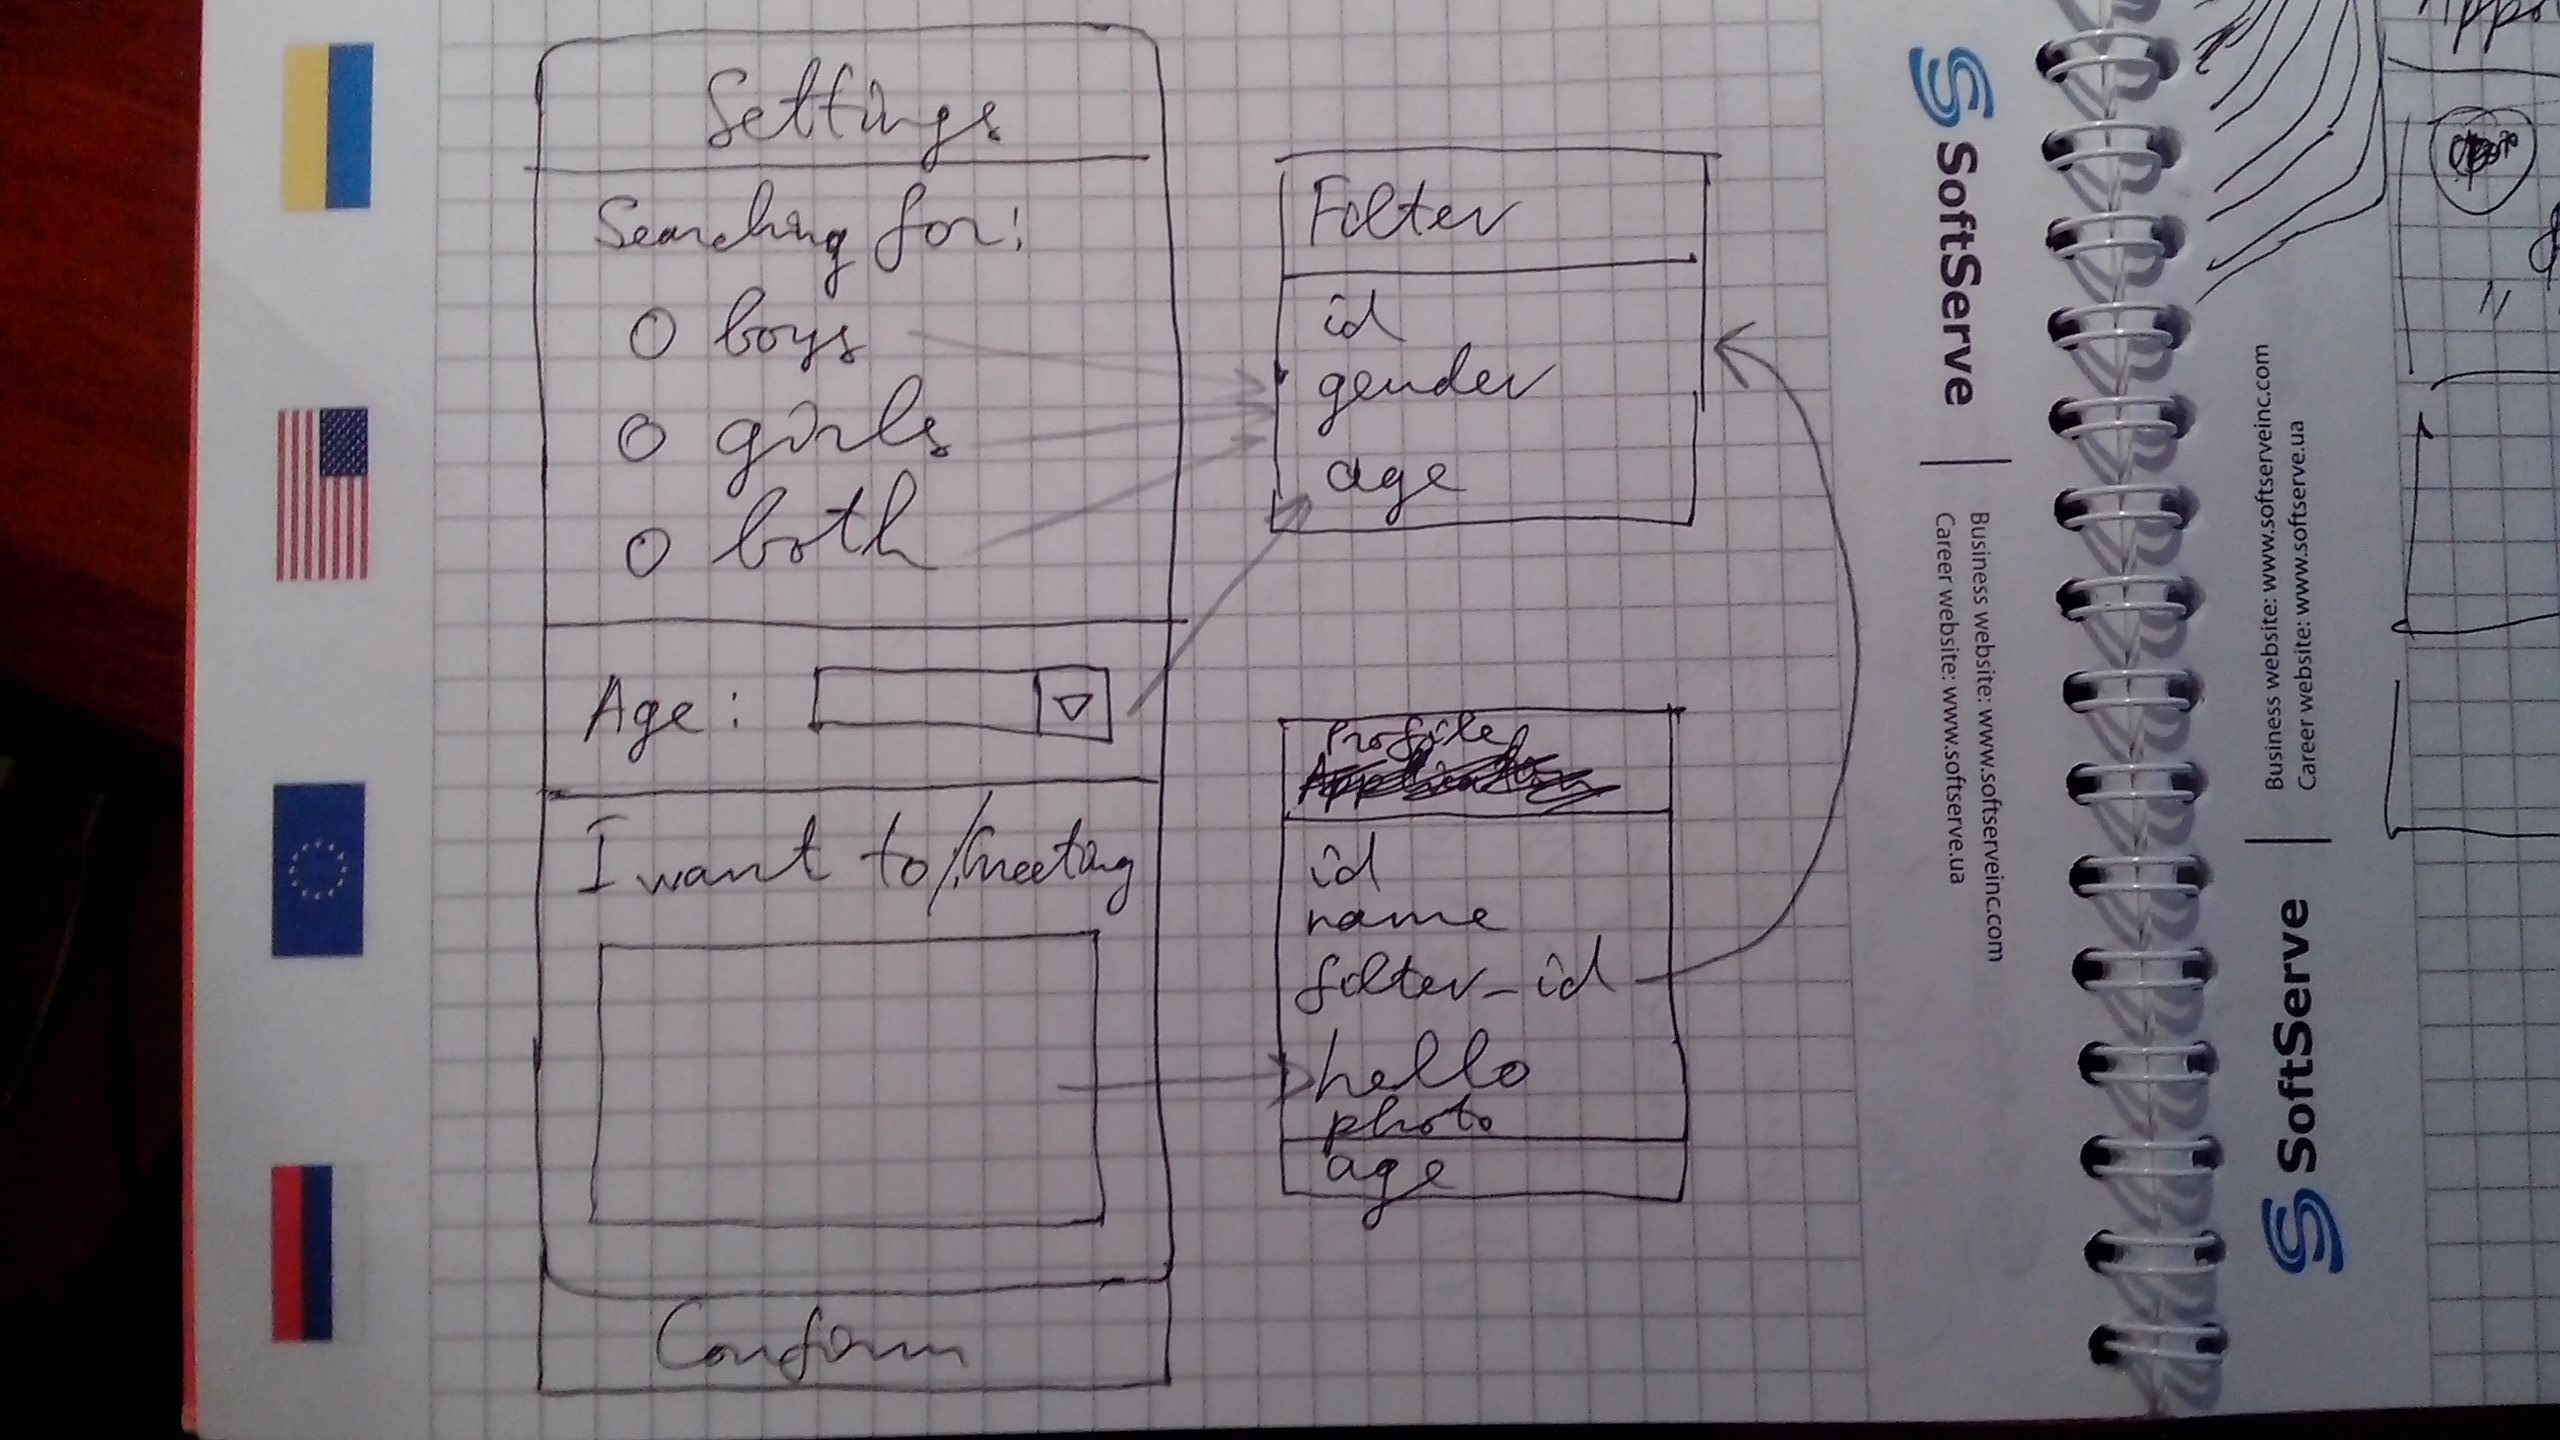 Settings
Searching for:
boys
girls
both
Age:
I want to/Greeting
Confirm
Filter
id
gender
age
Profile
id
name
filter_id
hello
photo
age
SoftServe
Business website: www.softserveinc.com
Career website: www.softserve.ua
Business website: www.softserveinc.com
Career website: www.softserve.ua
SoftServe